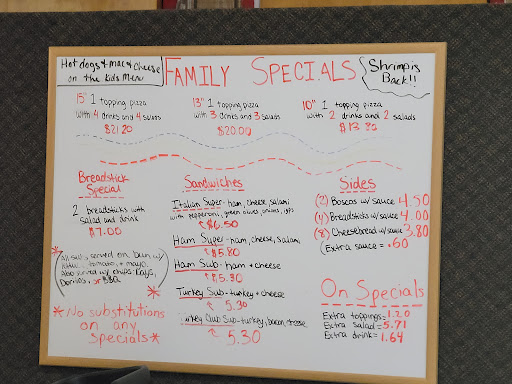 Hot dogs & mac & cheese
on the kids menu
FAMILY SPECIALS
Shrimp is
Back!!
15" 1 topping pizza
with 4 drinks and 4 salads
$21.20
13" 1 topping pizza
with 3 drinks and 3 salads
$20.00
10" 1 topping pizza
with 2 drinks and 2 salads
$13.80
Breadstick
Special
2 breadsticks with
salad and drink
$7.00
*All subs served on bun w/
tomato, + mayo.
also served w/ chips: Lays,
Doritos, or BBQ*
*No substitutions
on any
specials*
Sandwiches
Italian Super - ham, cheese, salami
with pepperoni, green olives, onions,
$6.50
Ham Super - ham, cheese, salami
$5.80
Ham Sub - ham + cheese
$5.30
Turkey Sub - turkey + cheese
5.30
Turkey Club Sub - turkey, bacon, cheese
5.30
Sides
(2) Boscos w/ sauce 4.50
(4) Breadsticks w/ sauce 4.00
(8) Cheesebread w/ sauce 3.80
Extra sauce = .60
On Specials
Extra toppings = 1.20
Extra salad = 5.71
Extra drink = 1.64